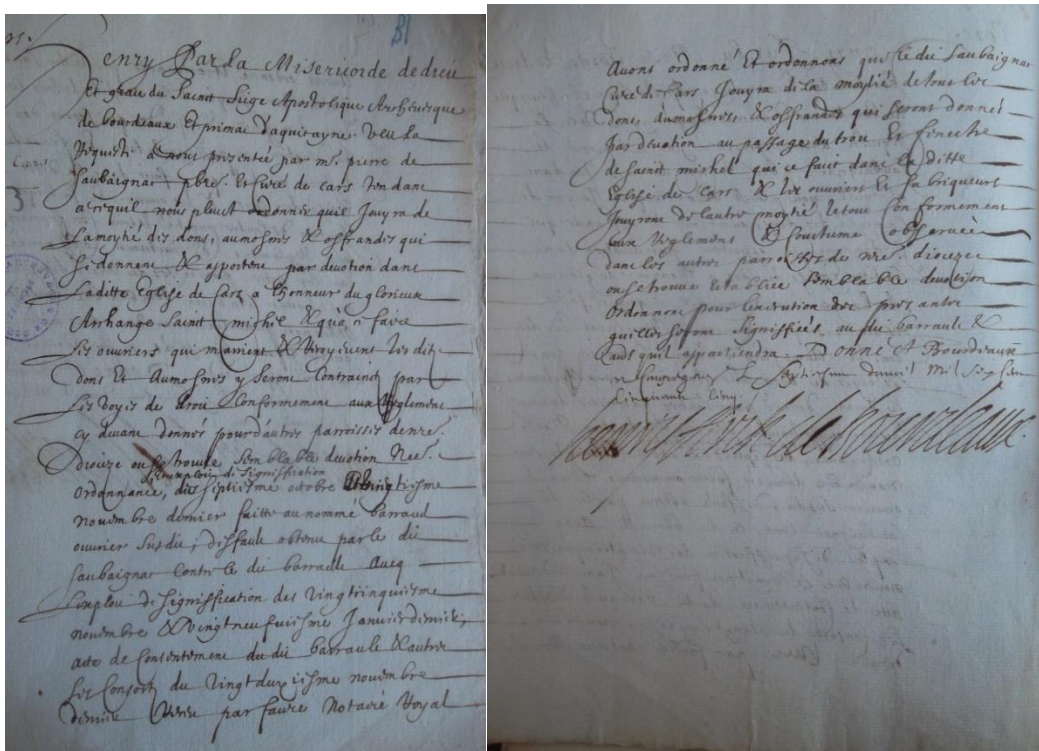 81
Cars
3
Henry Par La Misericorde de dieu
Et grace du Sainct Siege Apostolique Archevesque
de bourdeaux Et primat daquitayne. Veu La
Requeste a nous presentée par mr. pierre de
Saubaignac pbre. Et Curé de cars Tendant
a ce quil nous pleust ordonner quil Jouyra de
La moytié des dons, aumosnes & offrandes qui
se donnent & apportent par devotion dans
Laditte Eglise de Cars a Lhonneur du glorieux
Archange Sainct michel & qua ce faire
Les ouvriers qui manient & reçoivent les dits
dons Et Aumosnes y seront Contraincts par
Les voyes de droit Conformement aux Reglemens
cy devant donnés pour dautres parroisses de nre.
dioceze ou se trouve semblable devotion Nre.
& exploict de signiffication
Ordonnance, du septiesme octobre vingtiesme
novembre dernier faitte au nommé barraud
ouvrier susdit, deffault obtenu par le dit
Saubaignac Contre le dit barrault Avecq
Lexploit de signiffication des Vingt cinquiesme
novembre & vingt neufviesme Janvier dernier,
acte de Consentement dudit barrault & autres
ses Consorts du Vingt deuxiesme novembre
dernier Receu par faure Notaire Royal
Avons ordonné Et ordonnons que le dit Saubaignac
Curé de Cars Jouyra de la moytié de tous les
dons, aumosnes, & offrandes qui seront donnés
par devotion au passage du trou Et fenestre
de sainct michel qui se fait dans la ditte
Eglise de Cars & les ouvriers Et fabriqueurs
Jouyront de lautre moytié le tout Conformement
aux Reglemens & Coustume observée
dans les autres parroisses de nre. dioceze
ou se trouve establie semblable devotion
Ordonnons pour lexecution des presantes
quelles seront signiffiées au dit barrault &
a tous quil appartiendra. Donné A Bourdeaux
Le septiesme davril Mil six cens
Cinquante Cinq.
henry Arch. de bourdeaux.